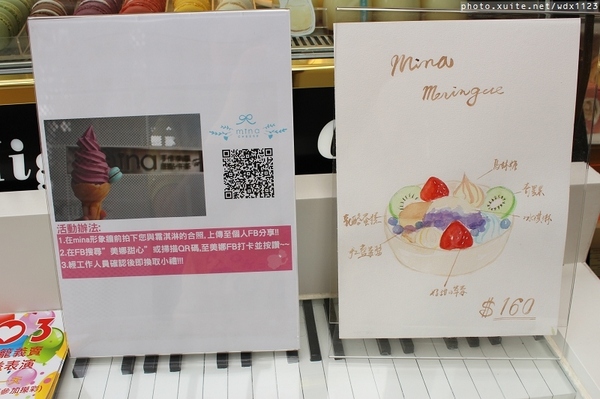 photo.xuite.net/wdx1123
mina
活動辦法:
1.在mina形象牆前拍下您與霜淇淋的合照,上傳至個人FB分享!!
2.在FB搜尋"美娜甜心"或掃描QR碼,至美娜FB打卡並按讚~~
3.經工作人員確認後即換取小禮!!!
Mina
Meringue
馬林糖
奇異果
冰淇淋
$160
3
表演